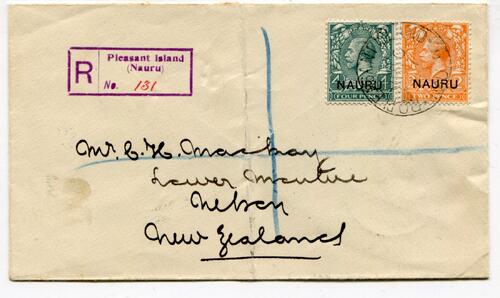 R
Pleasant Island
(Nauru)
No. 131
NAURU
FOUR PENCE
NAURU
TWO PENCE
Mr. C. H. Mackay
Lower Moutere
Nelson
New Zealand